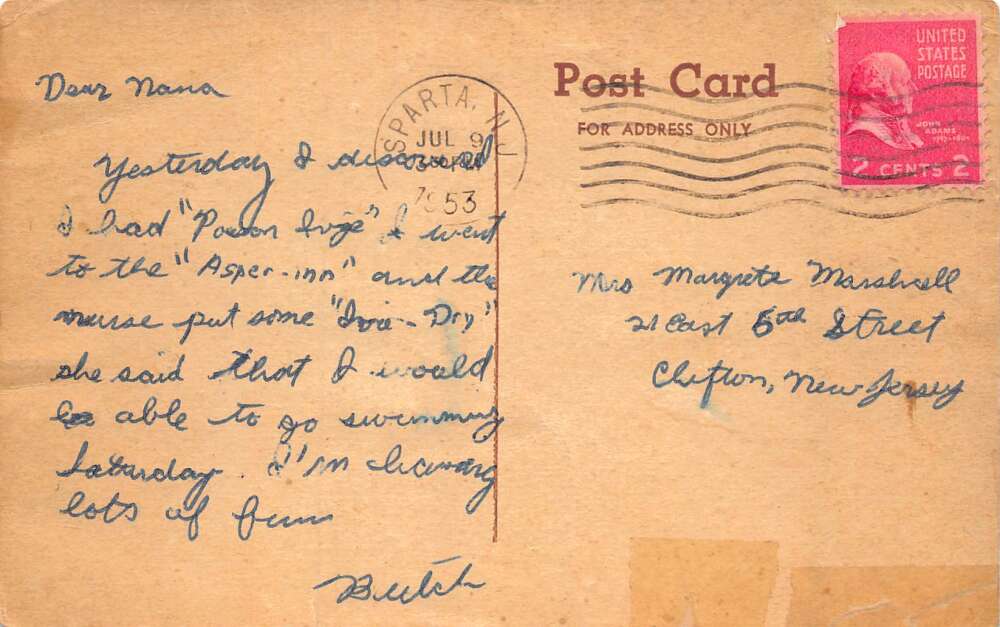 Dear Nana
Yesterday I
I had "Poison Ivije" I went
to the "Asper-inn" and the
nurse put some "Ivie-Dry"
she said that I would
be able to go swimming
Saturday. I'm having
lots of fun
Butch
SPARTA, N.J.
JUL 9
1953
Post Card
FOR ADDRESS ONLY
UNITED
STATES
POSTAGE
JOHN
ADAMS
2 CENTS 2
Mrs Margrete Marshall
21 East 5th Street
Clifton, New Jersey